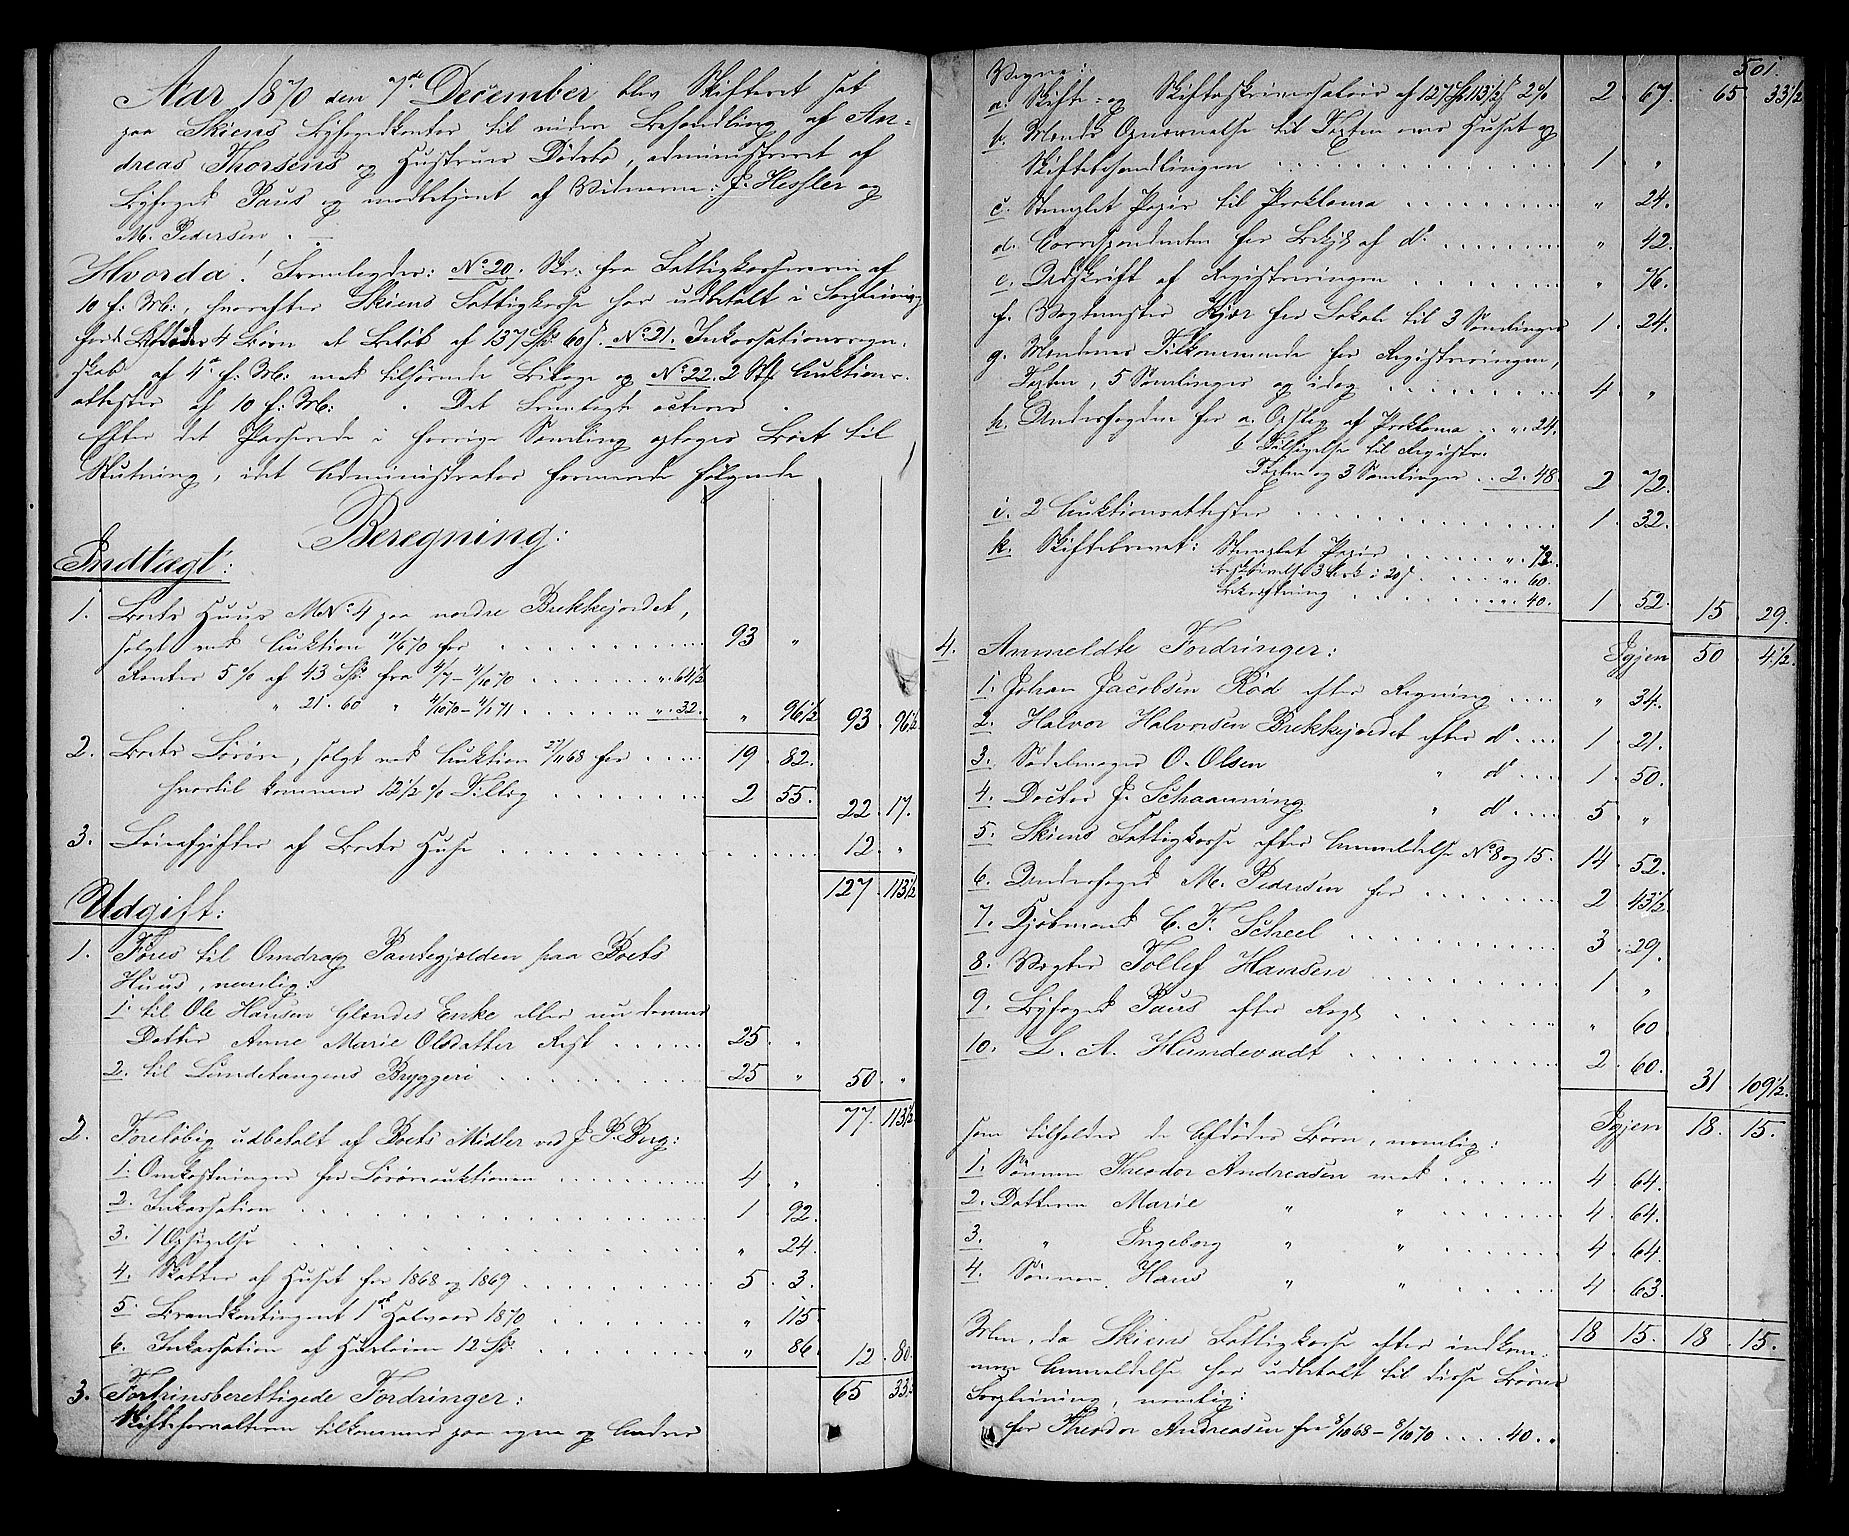 Aar 1870 den 7de December blev Skifteret sat
paa Skiens Byfogedkontor til videre Behandling af An=
dreas Thorsens og Hustrues Dødsbo, administreret af
Byfoged Paus og medbetjent af Vitnerne: J. Hessler og
M. Pedersen.
Hvorda! Fremlagdes: No 20. Skr: fra Fattigkassereren af
10 f: M:, hvorefter Skiens Fattigkasse har udbetalt i Forpleining
for de Afdødes 4 Børn et Beløb af 137 Spd 60 s. No 21. Inkassationsregn=
skab af 4de f: M: med tilhørende Bilage og No 22. 2 Stk Auktions=
attester af 10 f: M: Det Fremlagte acteres.
Efter det Passerede i forrige Samling optages Boet til
Slutning, idet Administrator formerede følgende
Beregning:
Indtægt:
1. Boets Huus M No 4 paa nordre Brekkejordet,
solgt ved Auktion 11/6 70 for 93 "
Renter 5 % af 43 Spd fra 4/7 - 4/10 70 ". 64 1/2
" 21. 60 " 4/10 70 - 4/1 71 ". 32. " 96 1/2 93. 96 1/2
2. Boets Løsøre, solgt ved Auktion 27/11 68 for 19. 82.
hvortil kommer 12 1/2 % Tillæg 2. 55. 22. 17.
3. Leieafgifter af Boets Huse 12. "
127. 113 1/2
Udgift:
1. Føres til Omdrag Pantegjælden paa Boets
Huus, nemlig:
1. til Ole Hansen Glendes Enke eller nu dennes
Datter Anne Marie Olsdatter Rest 25. "
2. til Lundetangens Bryggeri 25 " 50. "
77. 113 1/2
2. Foreløbig udbetalt af Boets Midler ved J. P. Berg:
1. Omkostninger ved Løsøreauktionen 4. "
2. Inkassation 1. 92.
3. 1 Opsigelse " 24.
4. Skatter af Huset for 1868 og 1869 5. 3.
5. Brandkontingent 1ste Halvaar 1870 " 115
6. Inkassation af Husleien 12 Spd " 86. 12. 80.
65 33 1/2
3. Fortrinsberettigede Fordringer:
Skifteforvalteren tilkommer paa egne og Andres
501.
Vegne:
a. Skifte- og Skifteskriversalær af 127 Spd 113 1/2 s 2 % 2. 67. 65 33 1/2
b. Mænds Opnævnelse til Taxten over Huset og
Skiftebehandlingen 1. "
c. Stemplet Papir til Proklama " 24.
d. Correspondenten for Bekjg af do " 42.
e. Udskrift af Registreringen " 76.
f. Vagtmester Kjær for Lokale til 3 Samlinger 1. 24.
g. Mændenes Tilkommende for Registreringen,
Taxten, 5 Samlinger og idag 4. "
h. Underfogden for a. Opslag af Proklama ". 24.
b. Tilsigelse til Registr.
Taxten og 3 Samlinger 2. 48. 2 72.
i. 2 Auktionsattester 1. 32.
k. Skiftebrevet: Stemplet Papir ". 72.
Beskrivelse 3 Ark à 20 s ". 60.
Bekræftning ". 40. 1. 52. 15 29.
4. Anmeldte Fordringer: Igjen 50 4 1/2.
1. Johan Jacobsen Rød efter Regning " 34.
2. Halvor Halvorsen Brekkejordet efter do 1. 21.
3. Sadelmager O. Olsen " do 1. 50.
4. Doctor J. Schaanning " do 5 "
5. Skiens Fattigkasse efter Anmeldelse No 8 og 15. 14. 52.
6. Underfoged M. Pedersen for 2 43 1/2
7. Kjøbmand C. F. Scheel 3. 29.
8. Vægter Tollef Hansen 1. "
9. Byfoged Paus efter Regg " 60
10. L. A. Hundevadt 2. 60. 31. 109 1/2.
Igjen 18. 15.
som tilfalder de Afdødes Børn, nemlig:
1. Sønnen Theodor Andreasen med 4. 64.
2. Datteren Marie " " 4. 64.
3. " Ingeborg " " 4. 64
4. Sønnen Hans " " 4. 63.
18 15. 18. 15.
Men, da Skiens Fattigkasse efter indkom=
men Anmeldelse har udbetalt til disse Børns
Forpleining, nemlig:
for Theodor Andreasen fra 8/10 68 - 8/10 70 40. "